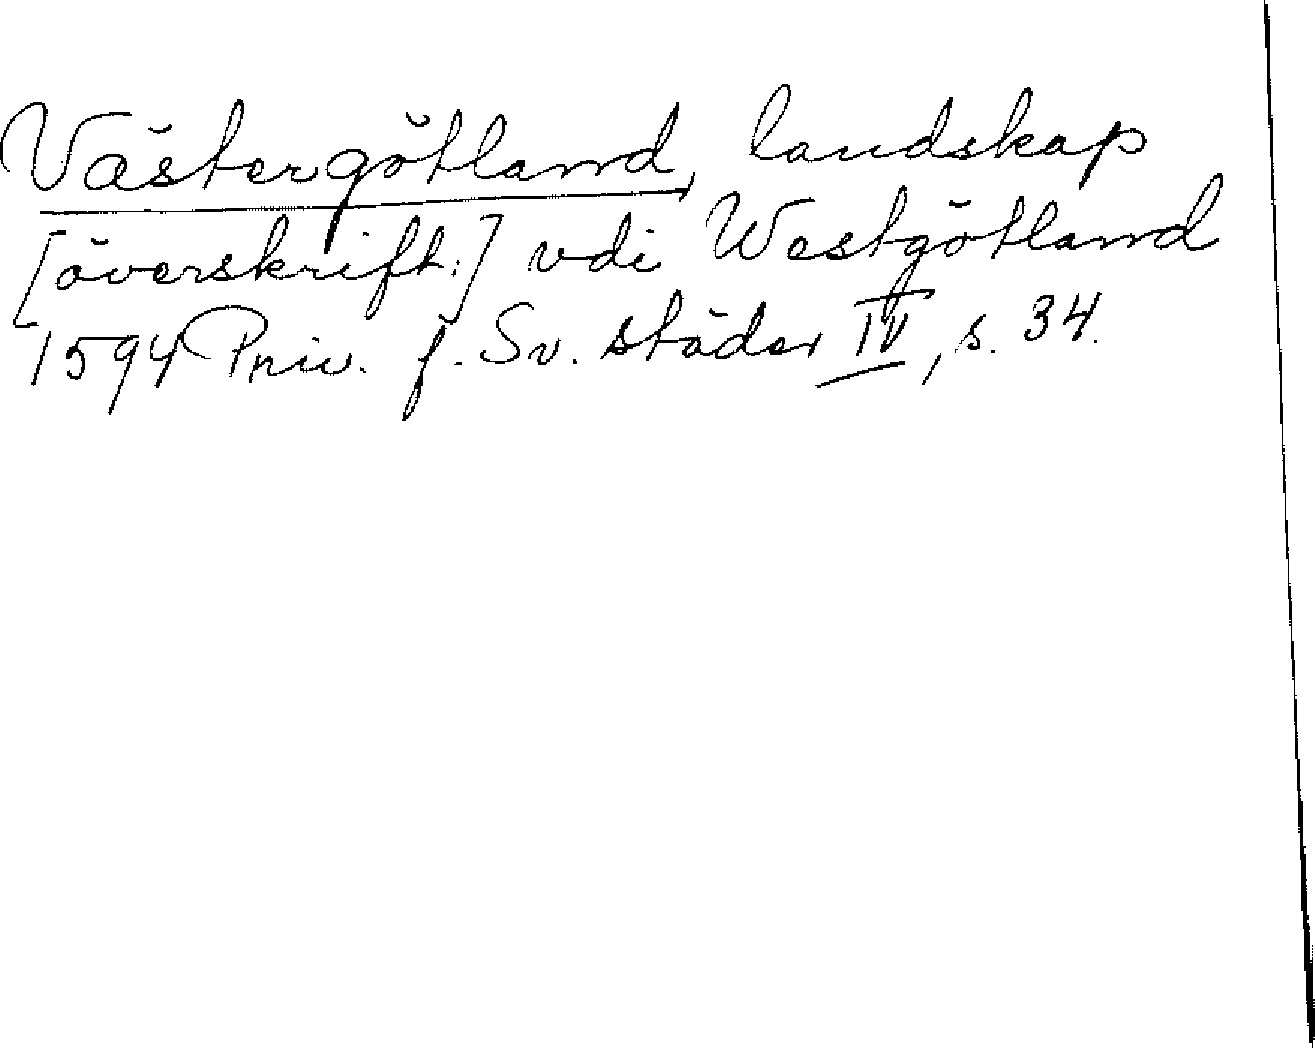 Västergötland, landskap
[överskrift:] vdi Westgötland
1594 Priv. f. Sv. städer IV, s. 34.